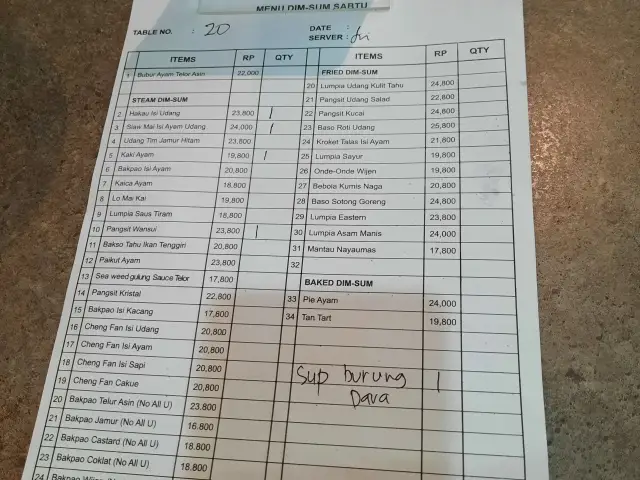 MENU DIM-SUM SABTU
TABLE NO. : 20
DATE :
SERVER :
ITEMS RP QTY
1 Bubur Ayam Telor Asin 22,000
STEAM DIM-SUM
2 Hakau Isi Udang 23,800 |
3 Siaw Mai Isi Ayam Udang 24,000 |
4 Udang Tim Jamur Hitam 23,800
5 Kaki Ayam 19,800 |
6 Bakpao Isi Ayam 20,800
7 Kaica Ayam 18,800
8 Lo Mai Kai 19,800
9 Lumpia Saus Tiram 18,800
10 Pangsit Wansui 23,800 |
11 Bakso Tahu Ikan Tenggiri 20,800
12 Paikut Ayam 23,800
13 Sea weed gulung Sauce Telor 17,800
14 Pangsit Kristal 22,800
15 Bakpao Isi Kacang 17,800
16 Cheng Fan Isi Udang 20,800
17 Cheng Fan Isi Ayam 20,800
18 Cheng Fan Isi Sapi 20,800
19 Cheng Fan Cakue 20,800
20 Bakpao Telur Asin (No All U) 23,800
21 Bakpao Jamur (No All U) 16.800
22 Bakpao Castard (No All U) 18.800
23 Bakpao Coklat (No All U) 18.800
24 Bakpao
ITEMS RP QTY
FRIED DIM-SUM
20 Lumpia Udang Kulit Tahu 24,800
21 Pangsit Udang Salad 22,800
22 Pangsit Kucai 24,800
23 Baso Roti Udang 25,800
24 Kroket Talas Isi Ayam 21,800
25 Lumpia Sayur 19,800
26 Onde-Onde Wijen 19,800
27 Bebola Kumis Naga 20,800
28 Baso Sotong Goreng 24,800
29 Lumpia Eastern 23,800
30 Lumpia Asam Manis 24,000
31 Mantau Nayaumas 17,800
32
BAKED DIM-SUM
33 Pie Ayam 24,000
34 Tan Tart 19,800
Sup burung |
Dava